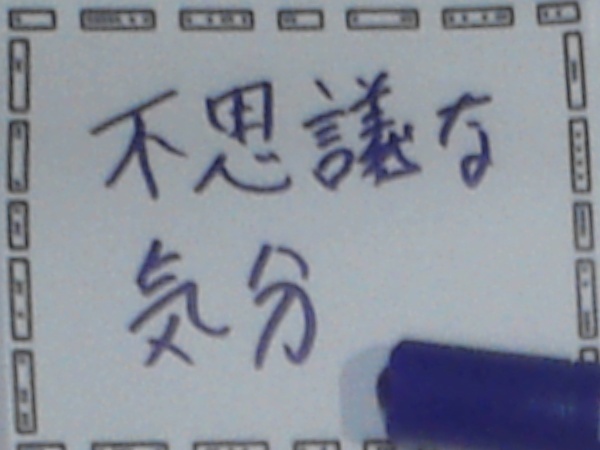 不思議な
気分